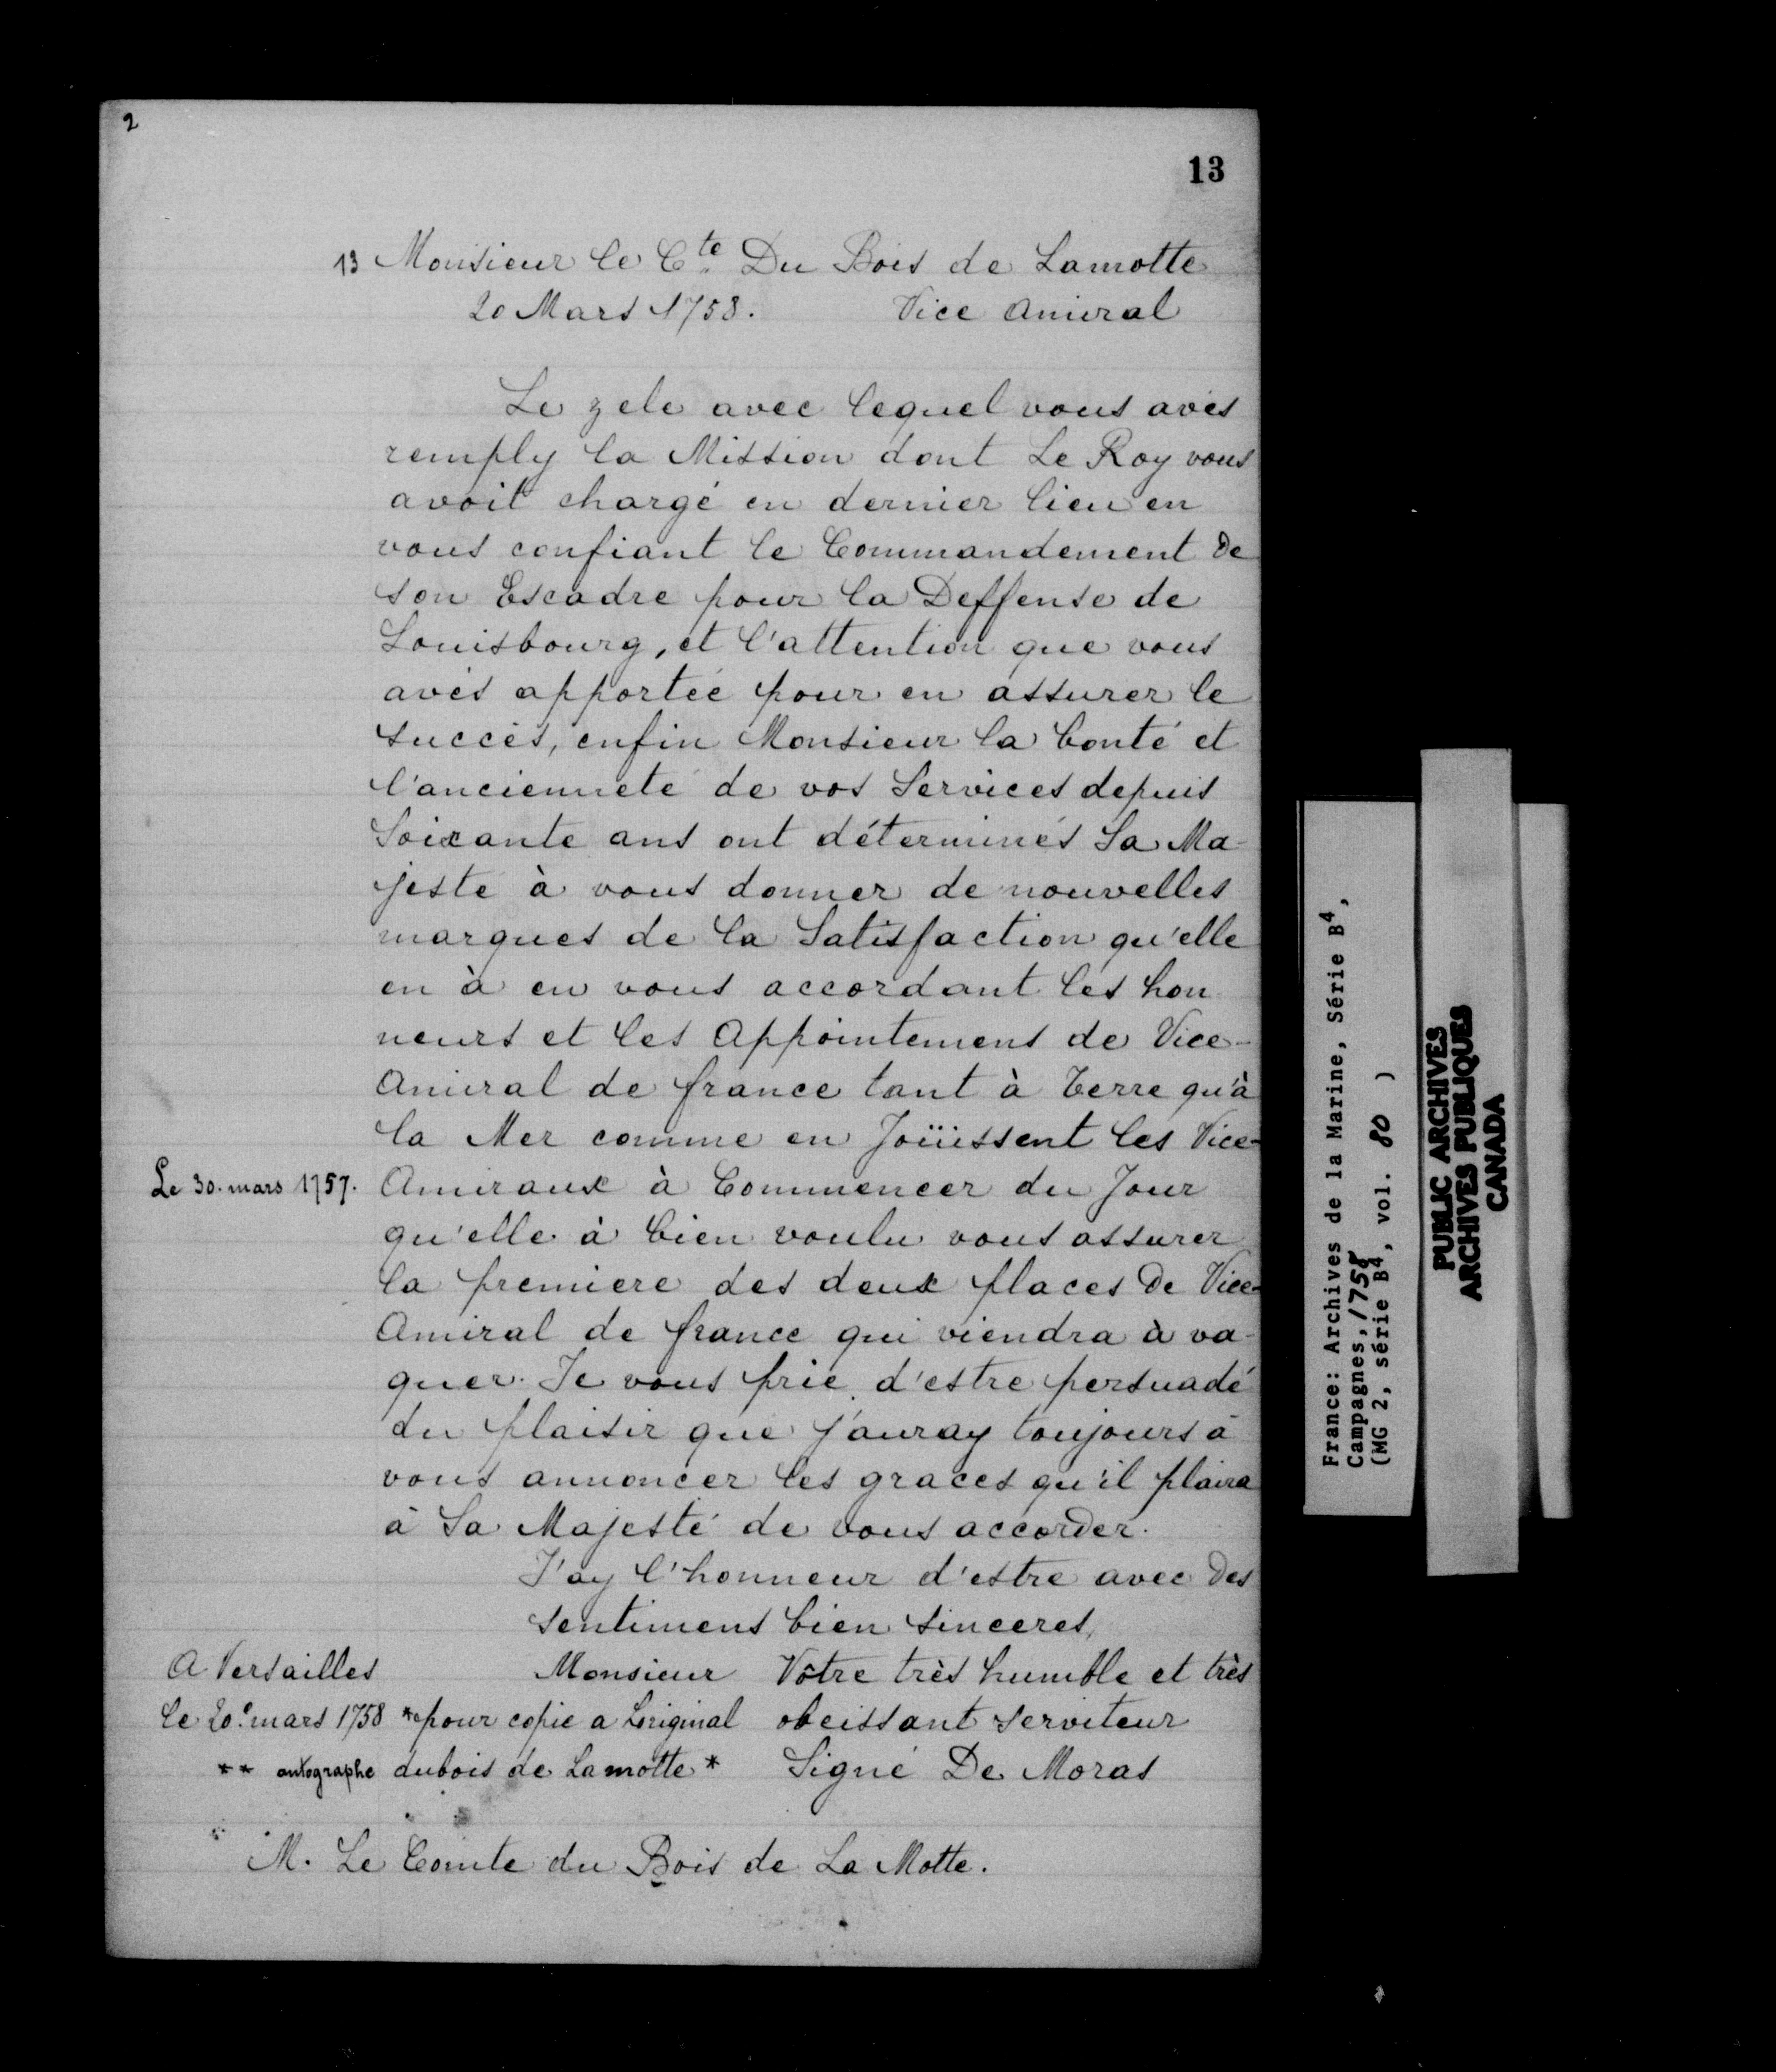 2
13
13 Monsieur le Cte Du Bois de Lamotte
20 Mars 1758. Vice Amiral
Le zele avec lequel vous avés
remply la Mission dont Le Roy vous
avoit chargé en dernier lieu en
vous confiant le Commandement De
son Escadre pour la Deffense de
Louisbourg, et l'attention que vous
avés apportée pour en assurer le
succès, enfin Monsieur la bonté et
l'ancienneté de vos Services depuis
Soixante ans ont déterminés Sa Ma-
jesté à vous donner de nouvelles
marques de la Satisfaction qu'elle
en à en vous accordant les hon
neurs et les Appointemens de Vice-
Amiral de france tant à Terre qu'à
la Mer comme en Joüissent les Vice-
Le 30. mars 1757. Amiraux à Commencer du Jour
qu'elle à bien voulu vous assurer
la premiere des deux places De Vice-
Amiral de france qui viendra à va-
quer. Je vous prie d'estre persuadé
du plaisir que j'auray toujours à
vous annoncer les graces qu'il plaira
à Sa Majesté de vous accorder.
J'ay l'honneur d'estre avec Des
sentimens bien sinceres,
A Versailles Monsieur Vôtre très humble et très
le 20e mars 1758 * pour copie a Loriginal obeissant serviteur
** autographe dubois de Lamotte * Signé De Moras
M. Le Comte du Bois de La Motte.
France: Archives de la Marine, Série B4,
Campagnes, 1758
(MG 2, série B4, vol. 80 )
PUBLIC ARCHIVES
ARCHIVES PUBLIQUES
CANADA